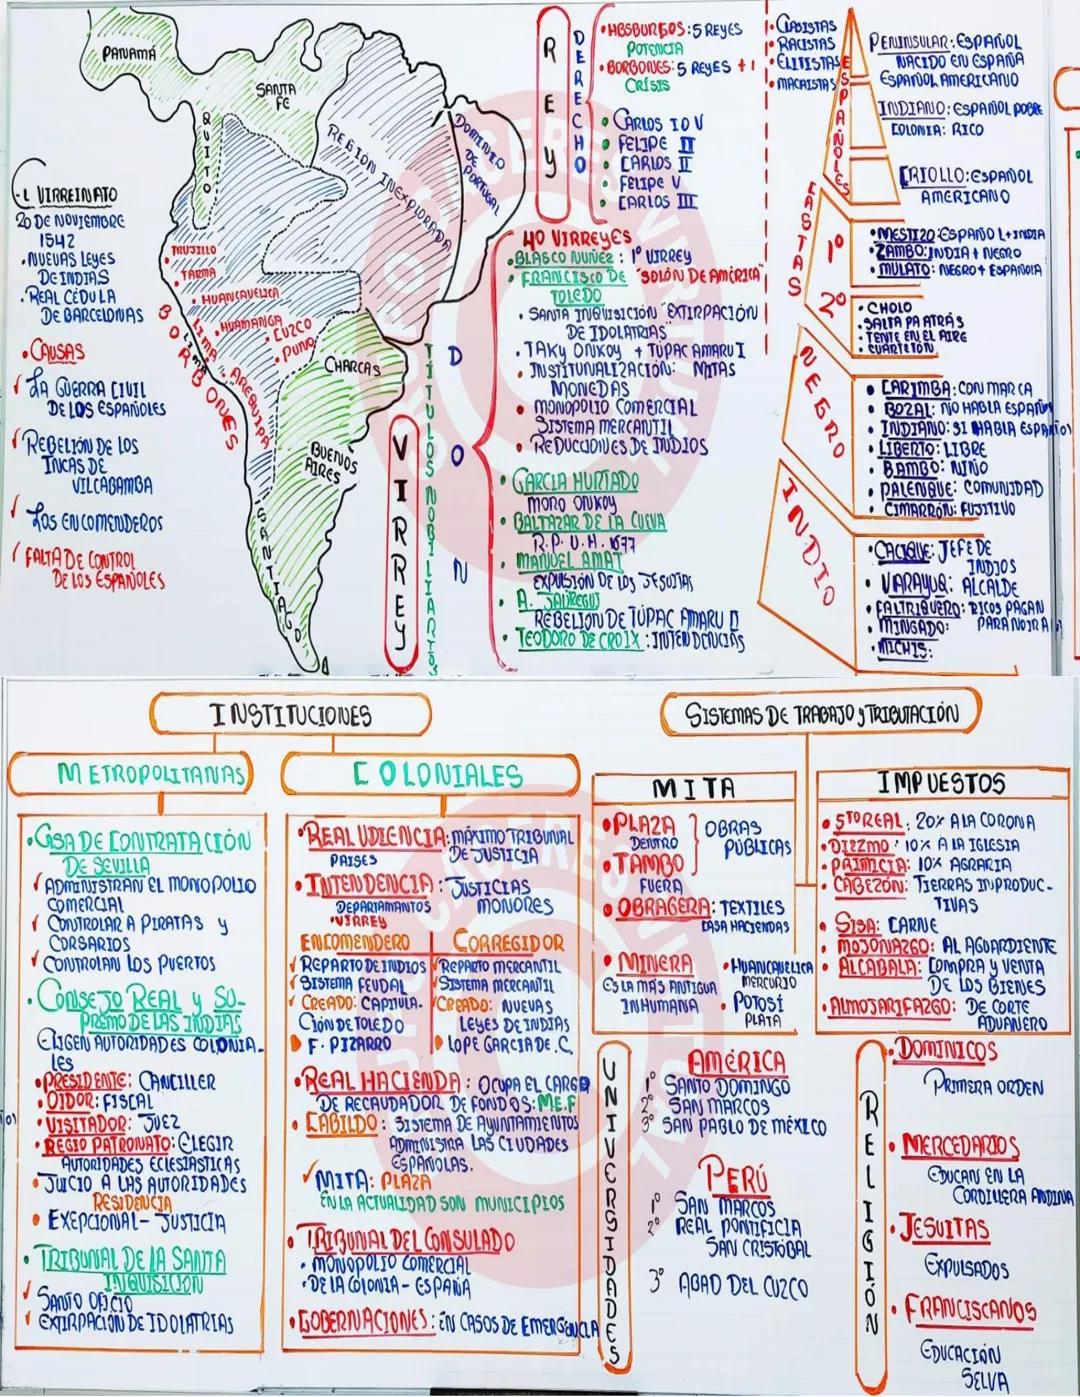 EL VIRREINATO
20 DE NOVIEMBRE
1542
• NUEVAS LEYES
DE INDIAS
• REAL CÉDULA
DE BARCELONAS
• CAUSAS
✓ LA GUERRA CIVIL
DE LOS ESPAÑOLES
✓ REBELIÓN DE LOS
INCAS DE
VILCABAMBA
✓ LOS ENCOMENDEROS
✓ FALTA DE CONTROL
DE LOS ESPAÑOLES
PANAMÁ
SANTA
FE
QUITO
REGION INEXPLORADA
DOMINIO
DE
PORTUGAL
• TRUJILLO
• TARMA
• HUANCAVELICA
• HUAMANGA
• CUZCO
• PUNO
LIMA
LIMA
AREQUIPA
BORBONES
CHARCAS
BUENOS
AIRES
SANTIAGO
VIRREY
TÍTULOS NOBILIARIOS
DON
REY
DERECHO
• HBSBURGOS: 5 REYES
POTENCIA
• BORBONES: 5 REYES + 1
CRÍSIS
• CARLOS I O V
• FELIPE II
• CARLOS II
• FELIPE V
• CARLOS III
40 VIRREYES
• BLASCO NUÑEZ: 1º VIRREY
• FRANCISCO DE "SOLÓN DE AMÉRICA"
TOLEDO
• SANTA INQUISICIÓN "EXTIRPACIÓN
DE IDOLATRIAS"
• TAKY ONKOY + TUPAC AMARU I
• INSTITUNALIZACIÓN: MITAS
MONEDAS
• MONOPOLIO COMERCIAL
SISTEMA MERCANTIL
• REDUCCIONES DE INDIOS
• GARCIA HURTADO
MORO ONKOY
• BALTAZAR DE LA CUEVA
R.P.U.H. 1677
• MANUEL AMAT
EXPULSIÓN DE LOS JESUITAS
• A. JAUREGUI
REBELION DE TÚPAC AMARU II
• TEODORO DE CROIX: INTENDENCIAS
• CLASISTAS
• RACISTAS
• ELITISTAS
• MACAISTAS
ESPAÑOLES
PENINSULAR: ESPAÑOL
NACIDO EN ESPAÑA
ESPAÑOL AMERICANO
INDIANO: ESPAÑOL POBRE
COLONIA: RICO
CRIOLLO: ESPAÑOL
AMERICANO
CASTAS
1º
• MESTIZO: ESPAÑOL + INDIA
• ZAMBO: INDIA + NEGRO
• MULATO: NEGRO + ESPAÑOLA
2º
• CHOLO
• SALTA PA ATRÁS
• TENTE EN EL AIRE
• CUARTETÓN
NEGRO
• CARIMBA: CON MARCA
• BOZAL: NO HABLA ESPAÑOL
• INDIANO: SI HABLA ESPAÑOL
• LIBERTO: LIBRE
• BAMBO: NIÑO
• PALENQUE: COMUNIDAD
• CIMARRÓN: FUJITIVO
INDIO
• CACIQUE: JEFE DE
INDIOS
• VARAYUQ: ALCALDE
• FALTRIQUERO: RICOS PAGAN
• MINGADO: PARA NO IR A
• MICHIS:
INSTITUCIONES
METROPOLITANAS
• CASA DE CONTRATACIÓN
DE SEVILLA
✓ ADMINISTRAN EL MONOPOLIO
COMERCIAL
✓ CONTROLAR A PIRATAS y
CORSARIOS
✓ CONTROLAN LOS PUERTOS
• CONSEJO REAL y SU-
PREMO DE LAS INDIAS
ELIGEN AUTORIDADES COLONIA-
LES
• PRESIDENTE: CANCILLER
• OIDOR: FISCAL
• VISITADOR: JUEZ
• REGIO PATRONATO: ELEGIR
AUTORIDADES ECLESIASTICAS
• JUICIO A LAS AUTORIDADES
RESIDENCIA
• EXEPCIONAL - JUSTICIA
• TRIBUNAL DE LA SANTA
INQUISICION
✓ SANTO OFICIO
✓ EXTIRPACIÓN DE IDOLATRIAS
COLONIALES
• REAL UDIENCIA: MÁXIMO TRIBUNAL
PAISES DE JUSTICIA
• INTENDENCIA: JUSTICIAS
DEPARTAMANTOS MONORES
• VIRREY
ENCOMENDERO
✓ REPARTO DE INDIOS
✓ SISTEMA FEUDAL
✓ CREADO: CAPITULA-
CIÓN DE TOLEDO
F. PIZARRO
CORREGIDOR
✓ REPARTO MERCANTIL
✓ SISTEMA MERCANTIL
✓ CREADO: NUEVAS
LEYES DE INDIAS
LOPE GARCIA DE.C.
• REAL HACIENDA: OCUPA EL CARGO
DE RECAUDADOR DE FONDOS: M.E.F
• CABILDO: SISTEMA DE AYUNTAMIENTOS
ADMINISTRA LAS CIUDADES
ESPAÑOLAS.
✓ MITA: PLAZA
EN LA ACTUALIDAD SON MUNICIPIOS
• TRIBUNAL DEL CONSULADO
• MONOPOLIO COMERCIAL
• DE LA COLONIA - ESPAÑA
• GOBERNACIONES: EN CASOS DE EMERGENCIA
SISTEMAS DE TRABAJO y TRIBUTACIÓN
MITA
• PLAZA
DENTRO
• TAMBO
FUERA
OBRAS
PÚBLICAS
• OBRAGERA: TEXTILES
CASA HACIENDAS
• MINERA
ES LA MÁS ANTIGUA
INHUMANA
• HUANCAVELICA
MERCURIO
• POTOSÍ
PLATA
IMPUESTOS
• 5TO REAL: 20% A LA CORONA
• DIEZMO: 10% A LA IGLESIA
• PRIMICIA: 10% AGRARIA
• CABEZÓN: TIERRAS INPRODUC-
TIVAS
• SISA: CARNE
• MOJONAZGO: AL AGUARDIENTE
• ALCABALA: COMPRA y VENTA
DE LOS BIENES
• ALMOJARIFAZGO: DE CORTE
ADUANERO
UNIVERSIDADES
AMÉRICA
1º SANTO DOMINGO
2º SAN MARCOS
3º SAN PABLO DE MÉXICO
PERÚ
1º SAN MARCOS
2º REAL PONTIFICIA
SAN CRISTÓBAL
3º ABAD DEL CUZCO
RELIGIÓN
• DOMINICOS
PRIMERA ORDEN
• MERCEDARIOS
EDUCAN EN LA
CORDILLERA ANDINA
• JESUITAS
EXPULSADOS
• FRANCISCANOS
EDUCACIÓN
SELVA